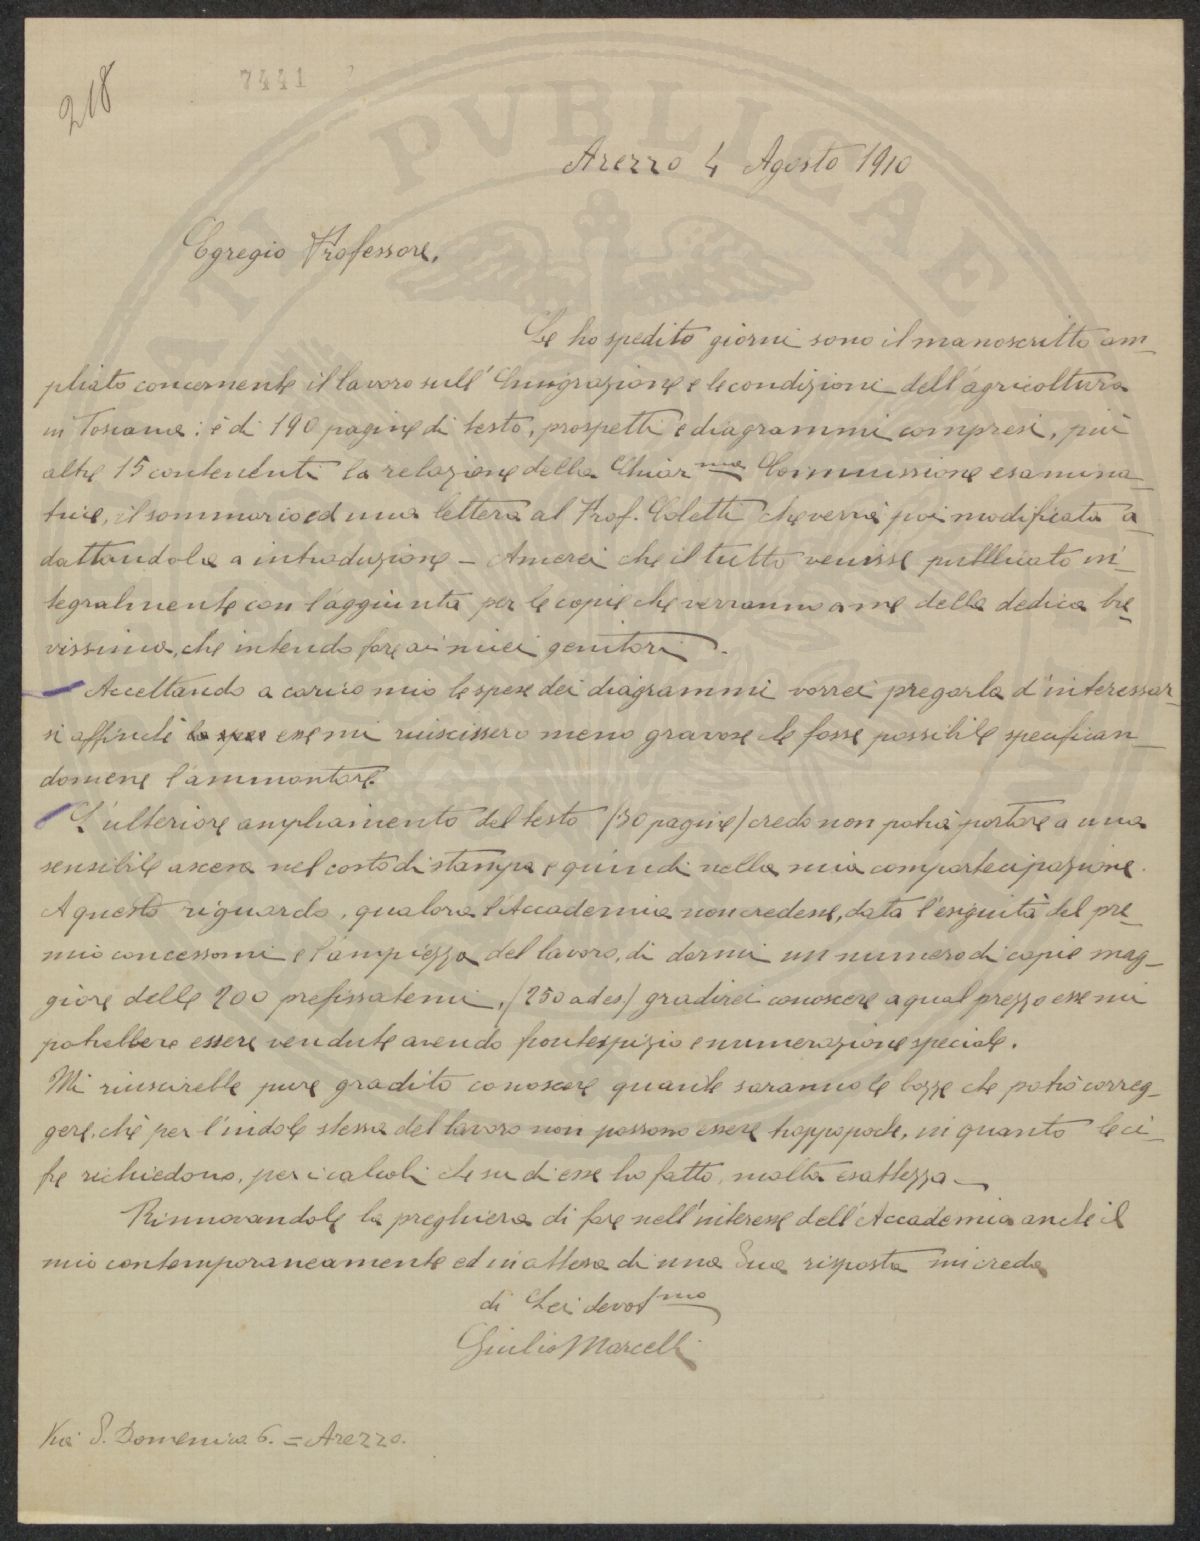 218
7441
Arezzo 4 Agosto 1910
Egregio Professore,
Le ho spedito giorni sono il manoscritto am-
pliato concernente il lavoro sull'Emigrazione e le condizioni dell'agricoltura
in Toscana: è di 190 pagine di testo, prospetti e diagrammi compresi, più
altre 15 contenenti la relazione della Chiar.ma Commissione esamina-
trice, il sommario ed una lettera al Prof. Coletti che verrà poi modificata a-
dattandola a introduzione – Amerei che il tutto venisse pubblicato in-
tegralmente con l'aggiunta per le copie che verranno a me della dedica bre-
vissima, che intendo fare ai miei genitori.
Accettando a carico mio le spese dei diagrammi vorrei pregarla d'interessar-
si affinché le spese esse mi riuscissero meno gravose che fosse possibile specifican-
domene l'ammontare.
L'ulteriore ampliamento del testo (30 pagine) credo non potrà portare a una
sensibile ascesa nel costo di stampa e quindi nella mia compartecipazione.
A questo riguardo, qualora l'Accademia non credesse, data l'esiguità del pre-
mio concessomi e l'ampiezza del lavoro, di darmi un numero di copie mag-
giore delle 200 prefissatemi, (250 ad es) gradirei conoscere a qual prezzo esse mi
potrebbere essere vendute avendo frontespizio e numerazione speciale.
Mi riuscirebbe pure gradito conoscere quante saranno le bozze che potrò correg-
gere, chè per l'indole stessa del lavoro non possono essere troppo poche, in quanto le ci-
fre richiedono, per i calcoli che su di esse ho fatto, molta esattezza –
Rinnovandole la preghiera di fare nell'interesse dell'Accademia anche il
mio contemporaneamente ed in attesa di una Sua risposta mi creda
di Lei devot.mo
Giulio Marcelli
Via S. Domenico 6. = Arezzo.
ATI PVBLICAE